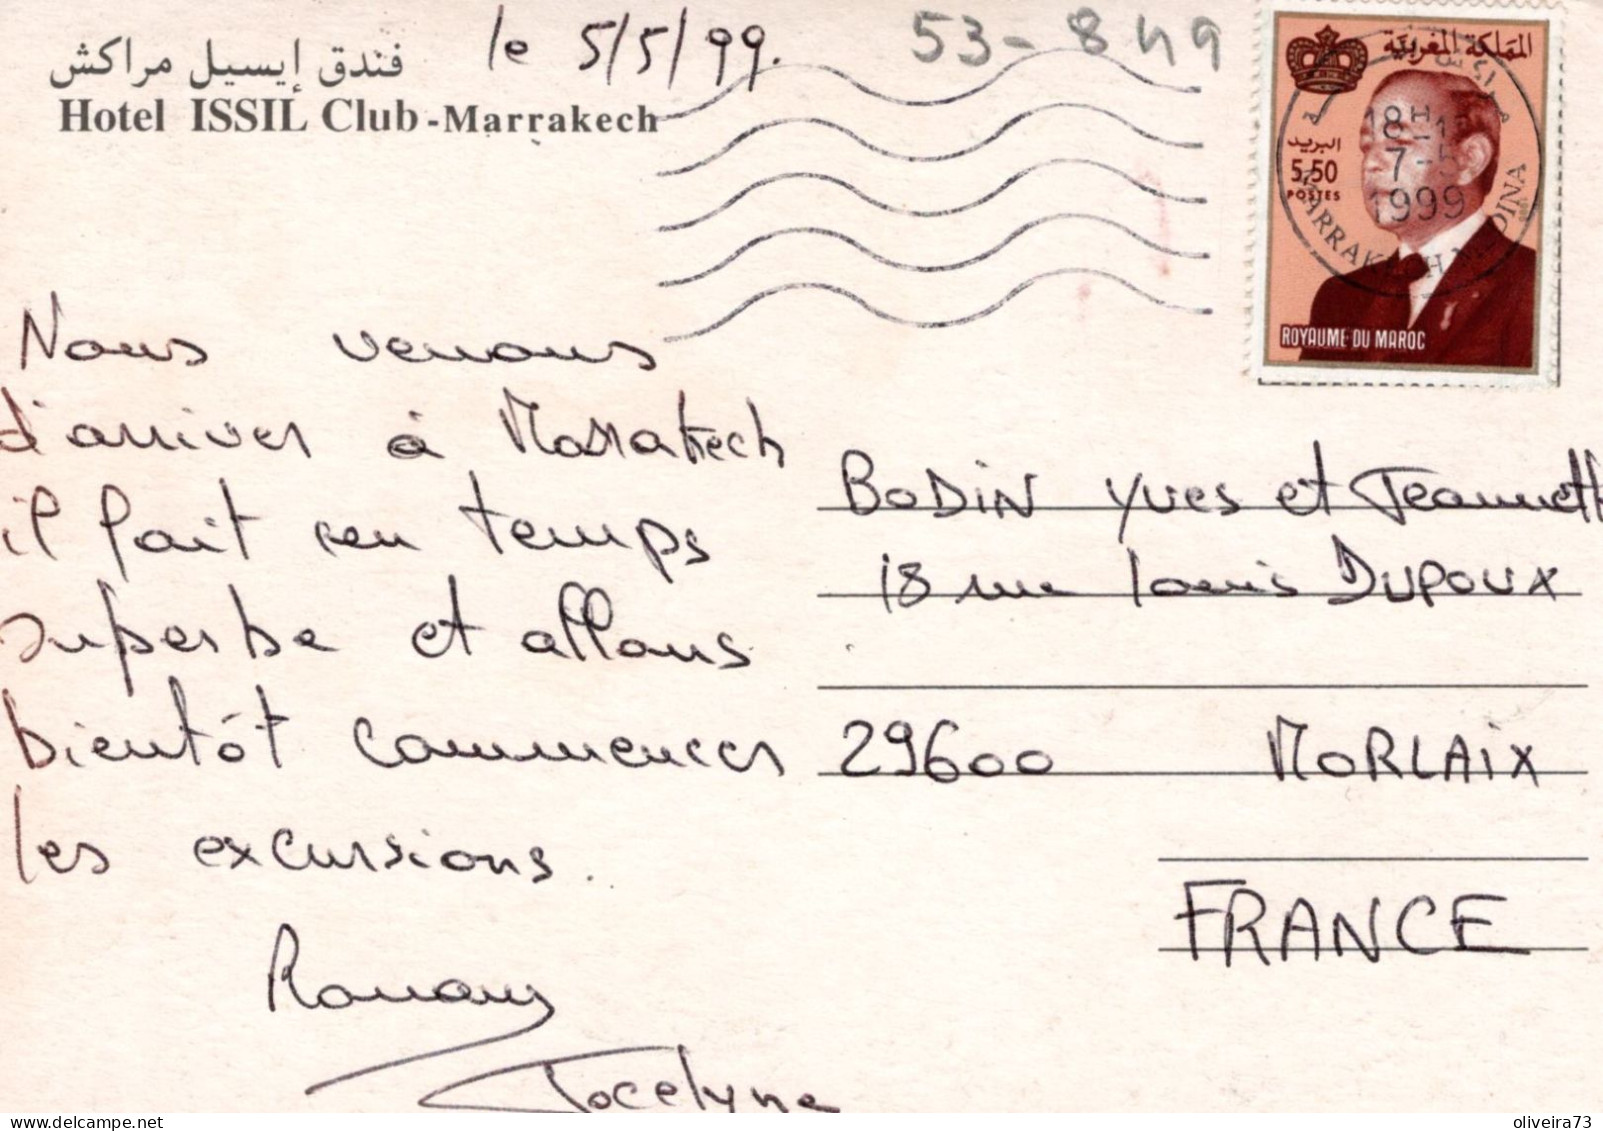 le 5/5/99.
53-849
فندق إيسيل مراكش
Hotel ISSIL Club - Marrakech
المملكة المغربية
البريد
5,50
POSTES
ROYAUME DU MAROC
18H
7-5
1999
MARRAKECH MEDINA
Nous venons
d'arriver à Marrakech
il fait un temps
superbe et allons
bientôt commencer
les excursions.
Ronany
Jocelyne
BODIN Yves et Jeannett
18 rue louis DUPOUX
29600 MORLAIX
FRANCE
oliveira73